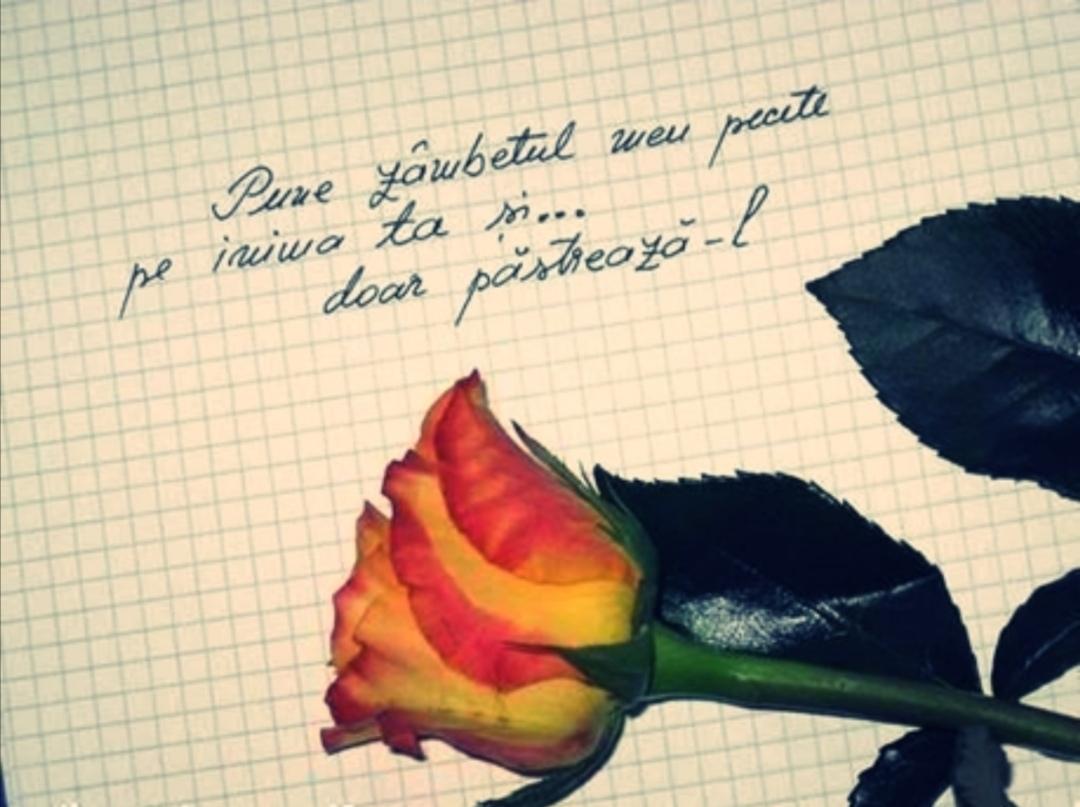 Pune zâmbetul meu pecete
pe inima ta și...
doar păstrează-l